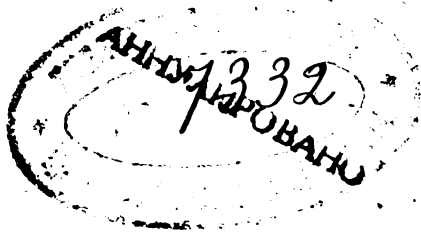 АННУЛИРОВАНО
1332